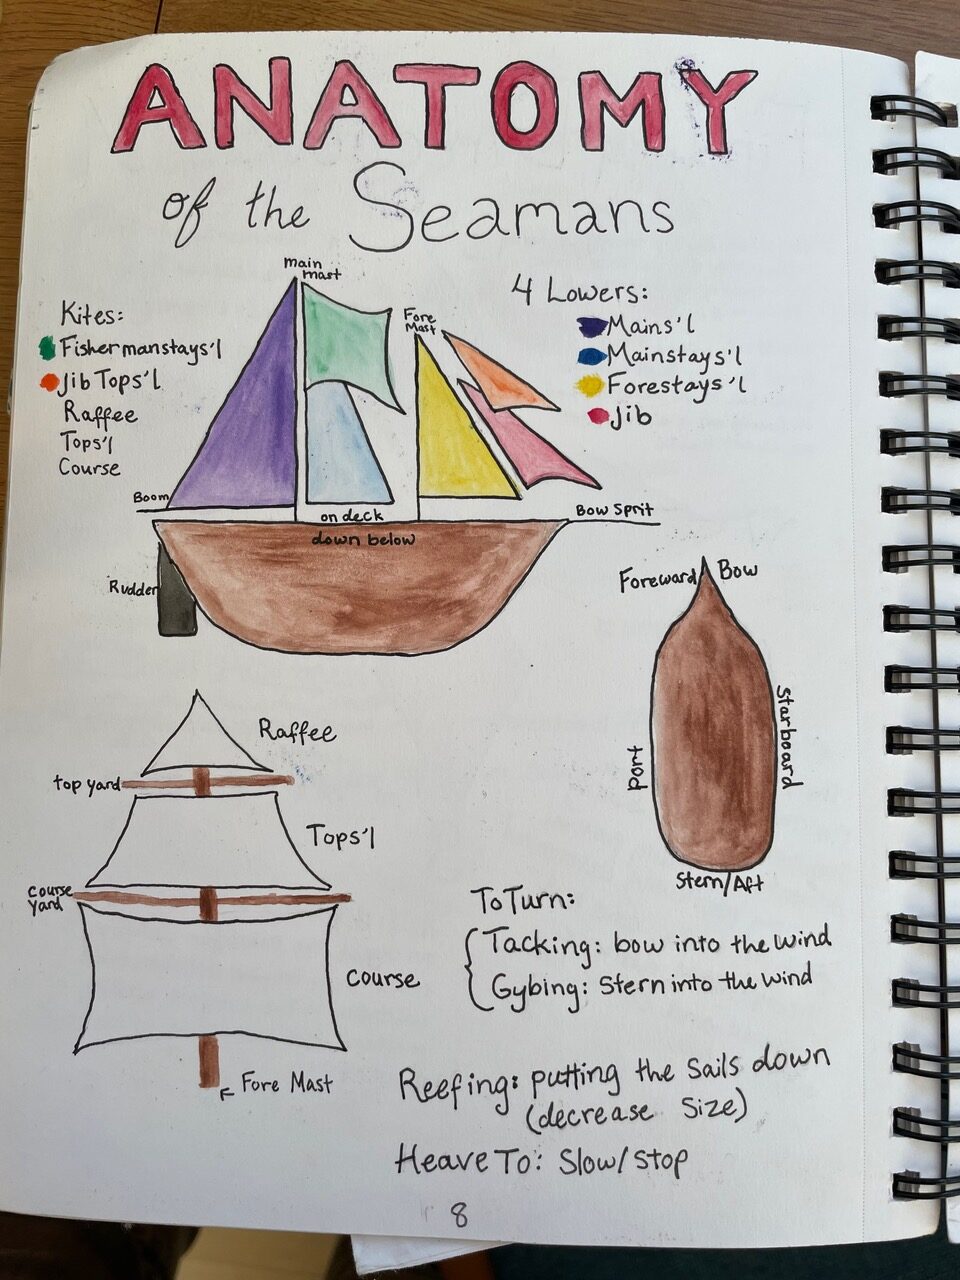 ANATOMY
of the Seamans
Main
mast
Kites:
Fishermanstays'l
Jib Tops'l
Raffee
Tops'l
Course
Fore
Mast
4 Lowers:
Mains'l
Mainstays'l
Forestays'l
Jib
Boom
on deck
down below
Bow Sprit
Rudder
Foreward
Bow
Port
Starboard
Stern/Aft
Raffee
top yard
Tops'l
course
yard
course
Fore Mast
To Turn:
Tacking: bow into the wind
Gybing: Stern into the wind
Reefing: putting the Sails down
(decrease Size)
Heave To: Slow/Stop
8